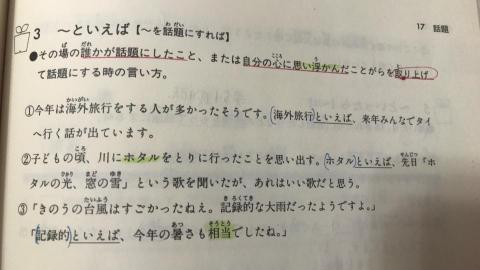 17 話題
3 ～といえば【～を話題にすれば】
●その場の誰かが話題にしたこと、または自分の心に思い浮かんだことがらを取り上げ
て話題にする時の言い方。
①今年は海外旅行をする人が多かったそうです。海外旅行といえば、来年みんなでタイ
へ行く話が出ています。
②子どもの頃、川にホタルをとりに行ったことを思い出す。ホタルといえば、先日「ホ
タルの光、窓の雪」という歌を聞いたが、あれはいい歌だと思う。
③「きのうの台風はすごかったねえ。記録的な大雨だったようですよ。」
「記録的といえば、今年の暑さも相当でしたね。」